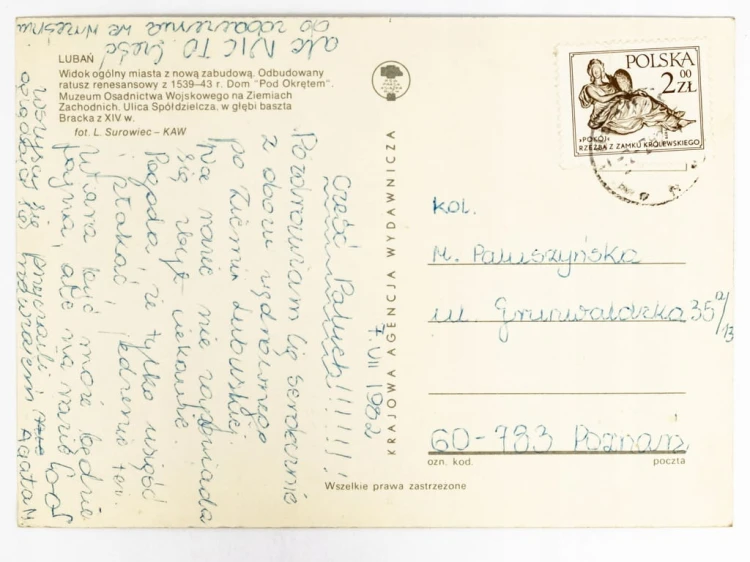 LUBAŃ
Widok ogólny miasta z nową zabudową. Odbudowany
ratusz renesansowy z 1539–43 r. Dom "Pod Okrętem".
Muzeum Osadnictwa Wojskowego na Ziemiach
Zachodnich. Ulica Spółdzielcza, w głębi baszta
Bracka z XIV w.
fot. L. Surowiec – KAW
KRAJOWA AGENCJA WYDAWNICZA
Wszelkie prawa zastrzeżone
POLSKA
2 00 ZŁ
»POKÓJ«
RZEŹBA Z ZAMKU KRÓLEWSKIEGO
kol.
M. Paluszyńska
ul. Grunwaldzka 35
60-783 Poznań
ozn. kod. poczta
7.VII 1982
Cześć Paluch!!!!!!!
Pozdrawiam Cię serdecznie
z obozu wędrownego
po Ziemi Lubuskiej
Na razie nie zapowiada
się zbyt ciekawie.
Pogoda, że tylko usiąść
i płakać, jedzenie też.
Wiara być może będzie
fajna, ale na razie
wszyscy się
ale NIC TO. Cześć
do zobaczenia we wrześniu
Agata M.